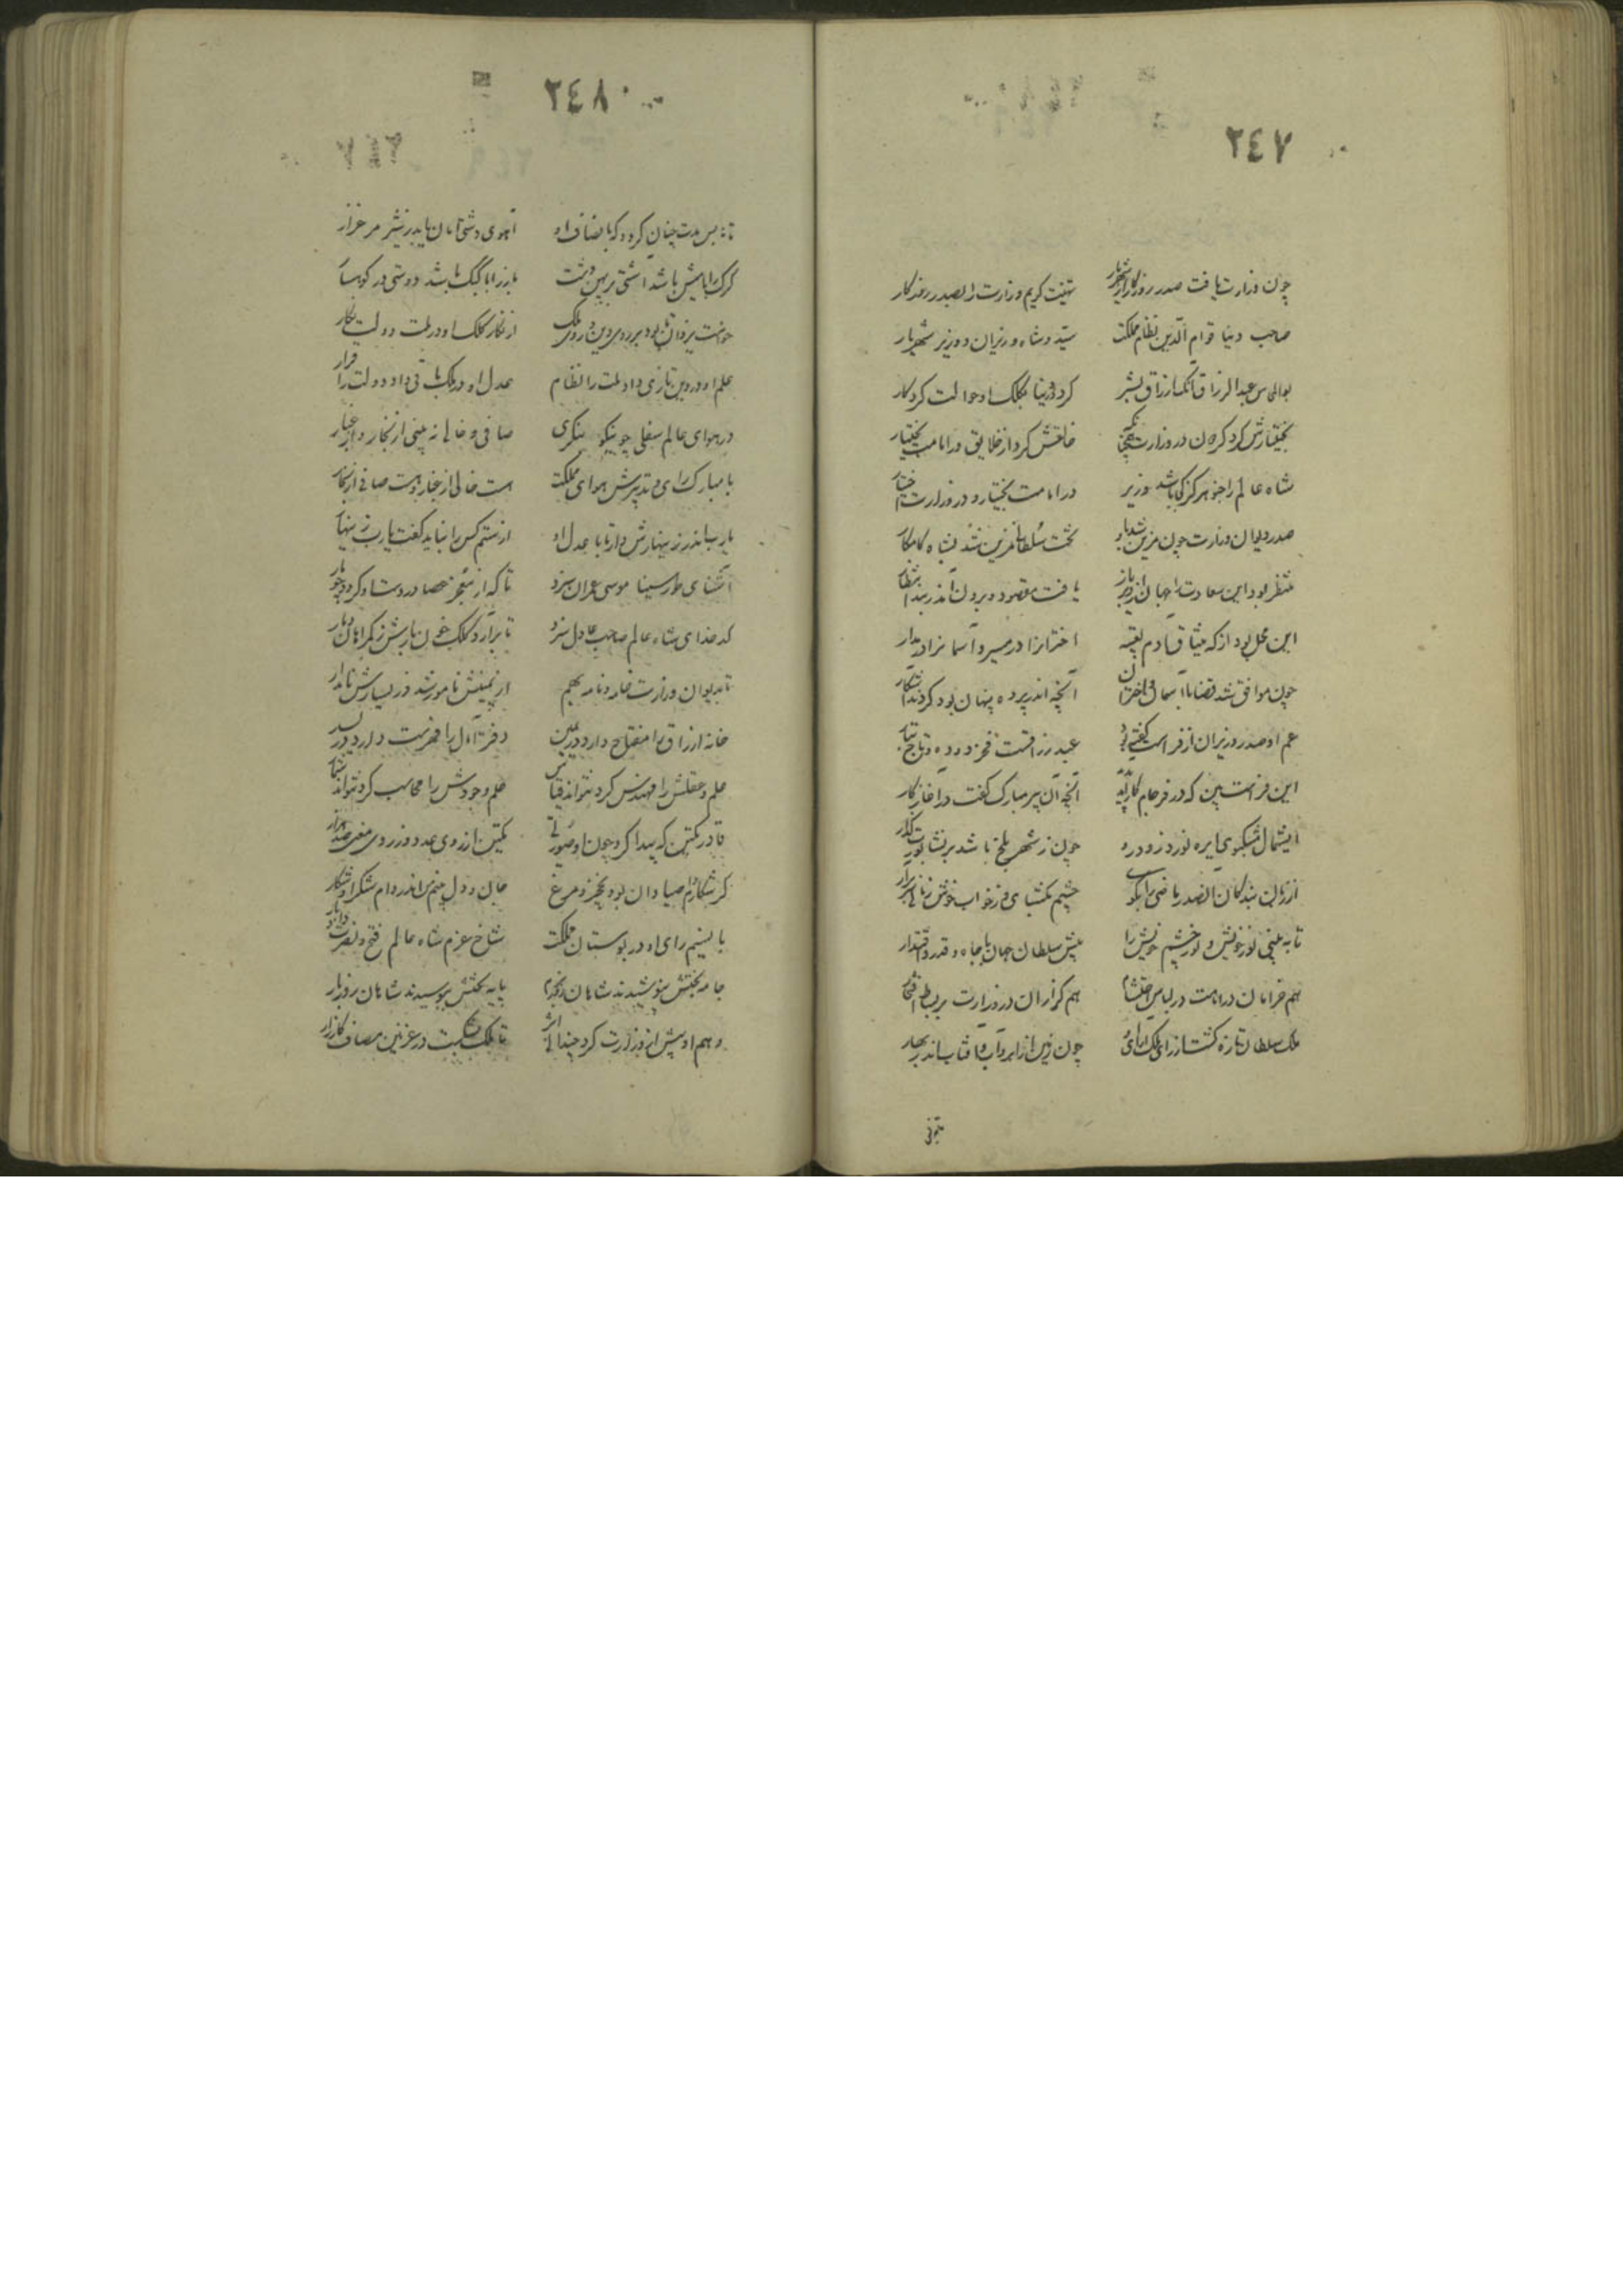 ٢٤٧
چون وزارت یافت صدر روزگار از شهریار تهنیت کردیم وزارت را بصدر روزگار
صاحب دنیا قوام الدین نظام مملکت سید و شاه وزیران و وزیر شهریار
بوالمعالی عبدالرزاق آنک ارزاق بشر کرد در دنیا بکلک او حوالت کردگار
بختیارش کرد گردون در وزارت خالقش کرد از خلایق در امامت بختیار
شاه عالم را جز او هرگز که باشد وزیر در امامت بختیار و در وزارت اختیار
صدر دیوان وزارت چون مزین شد باو تخت سلطانی مزین شد بشاه کامکار
منتظر بود این سعادت را جهان از دیر باز یافت مقصود و برون آمد ز بند انتظار
این عمل بود از که میثاق آدم بقیه اختران را در مسیر و آسمان را در مدار
چون موافق شد قضا با آسمان و اختران آنچه اندر پرده پنهان بود کردند آشکار
عم او صدر وزیران از فراست گفته بود عبد رزاقست فخر دوده و تاج تبار
این فراست بین که در فرجام کار آید پدید آنچه آن پیر مبارک گفت در آغاز کار
ای شمال مشکبوی ای ره نورد زود رو چون ز شهر بلخ باشد بر نشابورت گذار
از زبان بندگان الصدر ماضی را بگو چشم بگشای و ز خواب خوش زمانی سر برآر
تا به بینی نور خویش و نور چشم خویش را پیش سلطان جهان با جاه و قدر و اقتدار
هم خرامان در امامت در لباس احتشام هم گرازان در وزارت بر بساط افتخار
ملک سلطان تازه گشت از رای ملک آرای او چون زمین از ابر و آب و آفتاب اندر بهار
٢٤٨
تا نه بس مدت چنان گردد که با انصاف او آهوی دشتی امان یابد ز شیر مرغزار
گرگ را با میش باشد آشتی بر پهن دشت باز را با کبک باشد دوستی در کوهسار
خواست یزدان تا بود بر روی دین و روی ملک از نگار کلک او در ملت و دولت نگار
علم او در دین تازی داد ملت را نظام عدل او در ملک باقی داد دولت را قرار
در هوای عالم سفلی چو نیکو بنگری صافی و خالی نه بینی از بخار و از غبار
با مبارک رای و تدبیرش هوای مملکت هست خالی از غبار و هست صافی از بخار
یارب اندر زینهارش دار تا با عدل او از ستم کس را نباید گفت یارب زینهار
آشنای طور سینا موسی عمران سزد تا که از معجز عصا در دست او گردد چو مار
کدخدای شاه عالم صاحب عادل سزد تا برآرد کلک چون مارش ز گمراهان دمار
تا بدیوان وزارت خامه و نامه بهم از یمینش نامور شد وز یسارش نامدار
خانه ارزاق را مفتاح دارد در یمین دفتر آمال را فهرست دارد در یسار
حلم و عقلش را مهندس کرد نتواند قیاس علم و جودش را محاسب کرد نتواند شمار
قادر یکتن که پیدا کرد چون او صورتی یکتن از روی عدد وز روی معنی صد هزار
گر شکار دام صیادان بود نخجیر و مرغ جان و دل بینم من اندر دام شکر او شکار
با نسیم رای او در بوستان مملکت شاخ عزم شاه عالم فتح و نصرت داد بار
جامه بختش بپوشیدند شاهان روز بزم پایه تختش ببوسیدند شاهان روز بار
وهم او پیش از وزارت کرد چندانی اثر تا ملک بشکست در غزنین مصاف کارزار